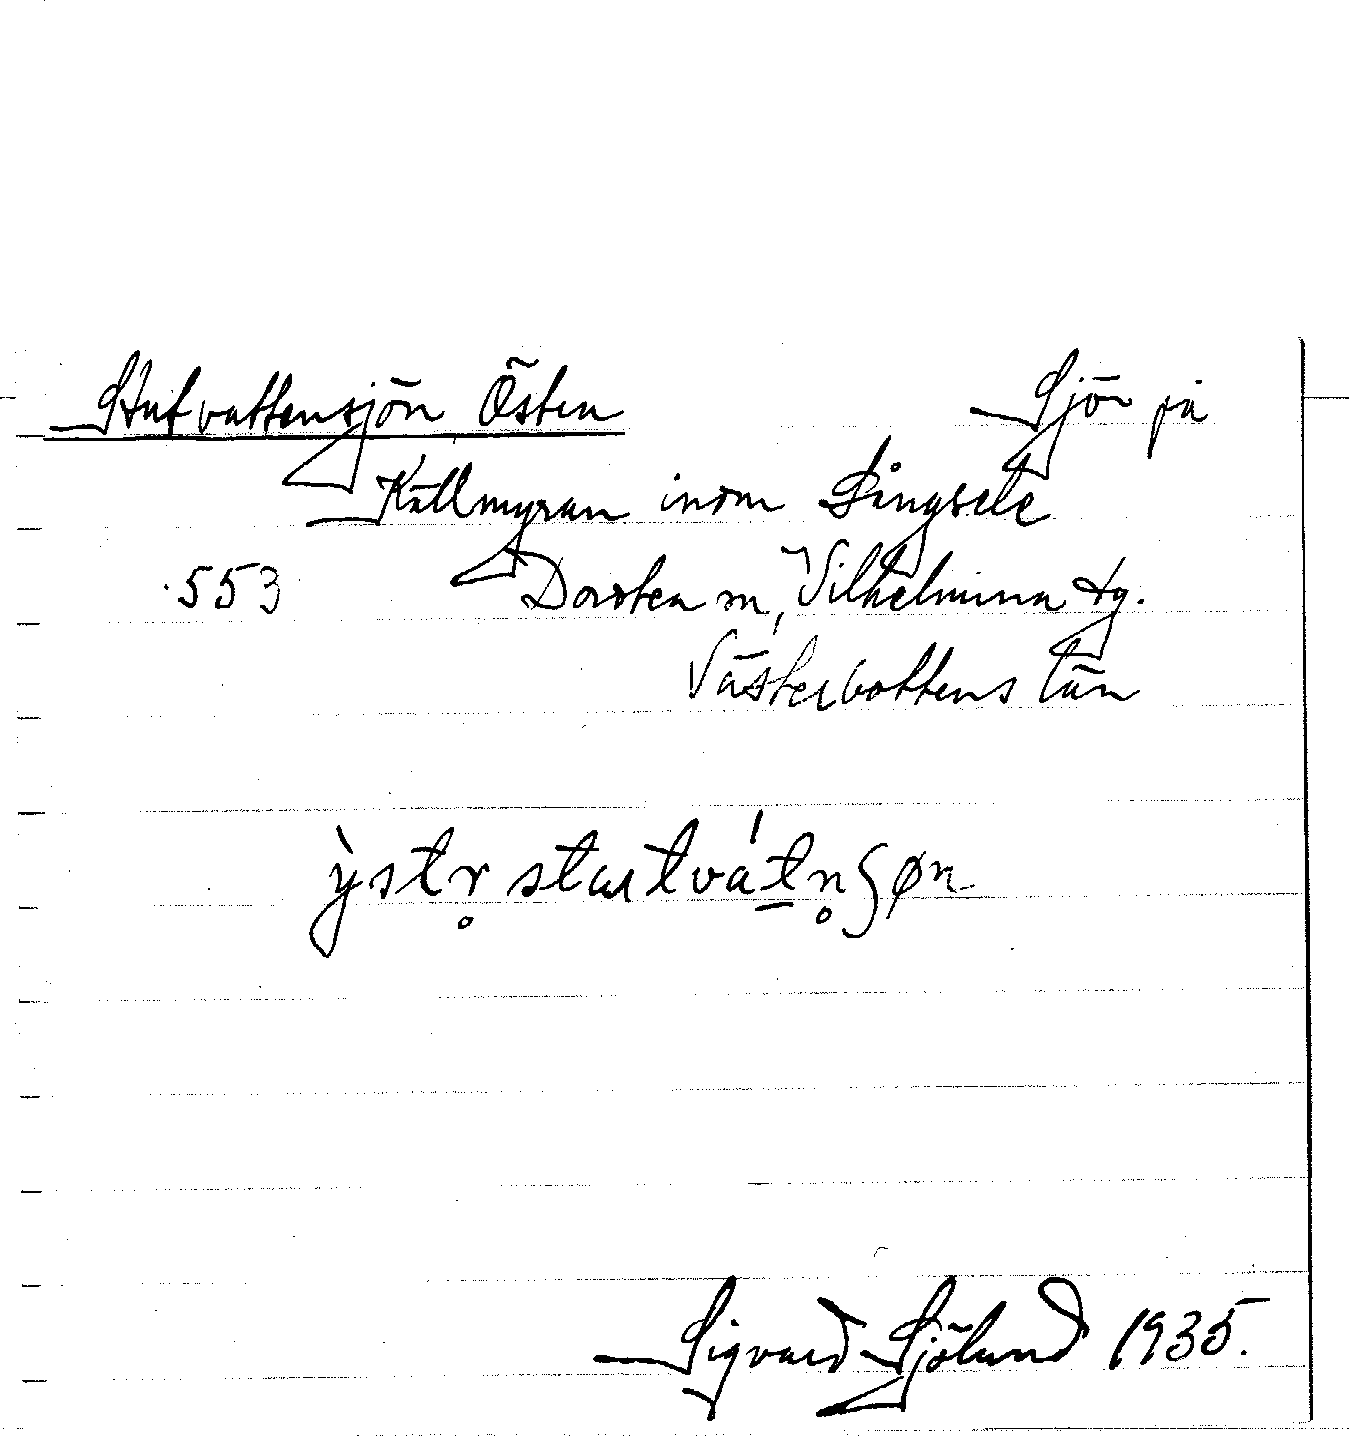 Stutvattensjön Östra Sjö på
Källmyran inom Långsele
553 Dorotea sn, Vilhelmina tg.
Västerbottens län
ỳstr̥ stutvát̲n̥ʃøn
Sigvard Sjölund 1935.